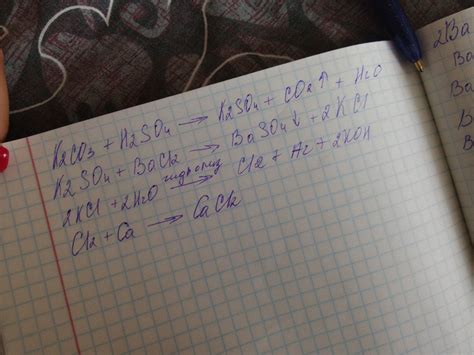 K2CO3 + H2SO4 → K2SO4 + CO2↑ + H2O
K2SO4 + BaCl2 → BaSO4↓ + 2KCl
2KCl + 2H2O гидролиз → Cl2 + H2 + 2KOH
Cl2 + Ca → CaCl2
2Ba
Ba
B
Ba